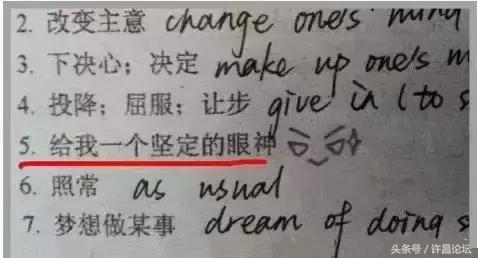 2. 改变主意 change one's mind
3. 下决心；决定 make up one's m
4. 投降；屈服；让步 give in (to s
5. 给我一个坚定的眼神
6. 照常 as usual
7. 梦想做某事 dream of doing s
头条号／许昌论坛